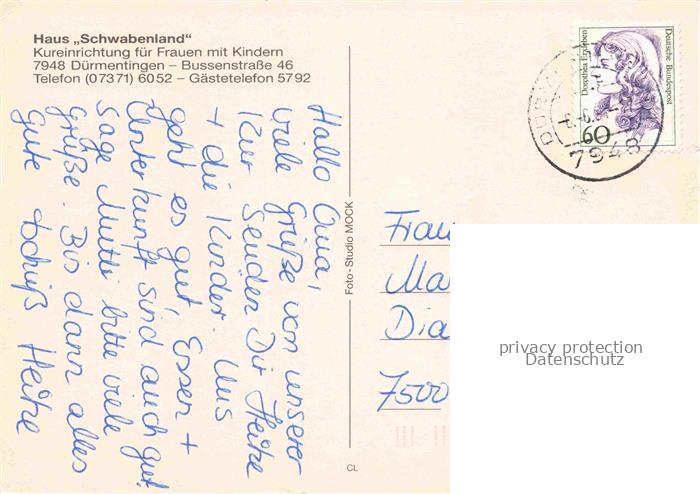 Haus „Schwabenland“
Kureinrichtung für Frauen mit Kindern
7948 Dürmentingen – Bussenstraße 46
Telefon (07371) 6052 – Gästetelefon 5792
Hallo Oma,
viele Grüße von unserer
Kur senden Dir Heike
+ die Kinder. Uns
geht es gut, Essen +
Unterkunft sind auch gut.
Sage Mutti bitte viele
Grüße. Bis dann alles
gute tschüß Heike
Foto-Studio MOCK
CL
Dorothea Erxleben
Deutsche Bundespost
60
7948
Frau
Ma
Dia
7500
privacy protection
Datenschutz